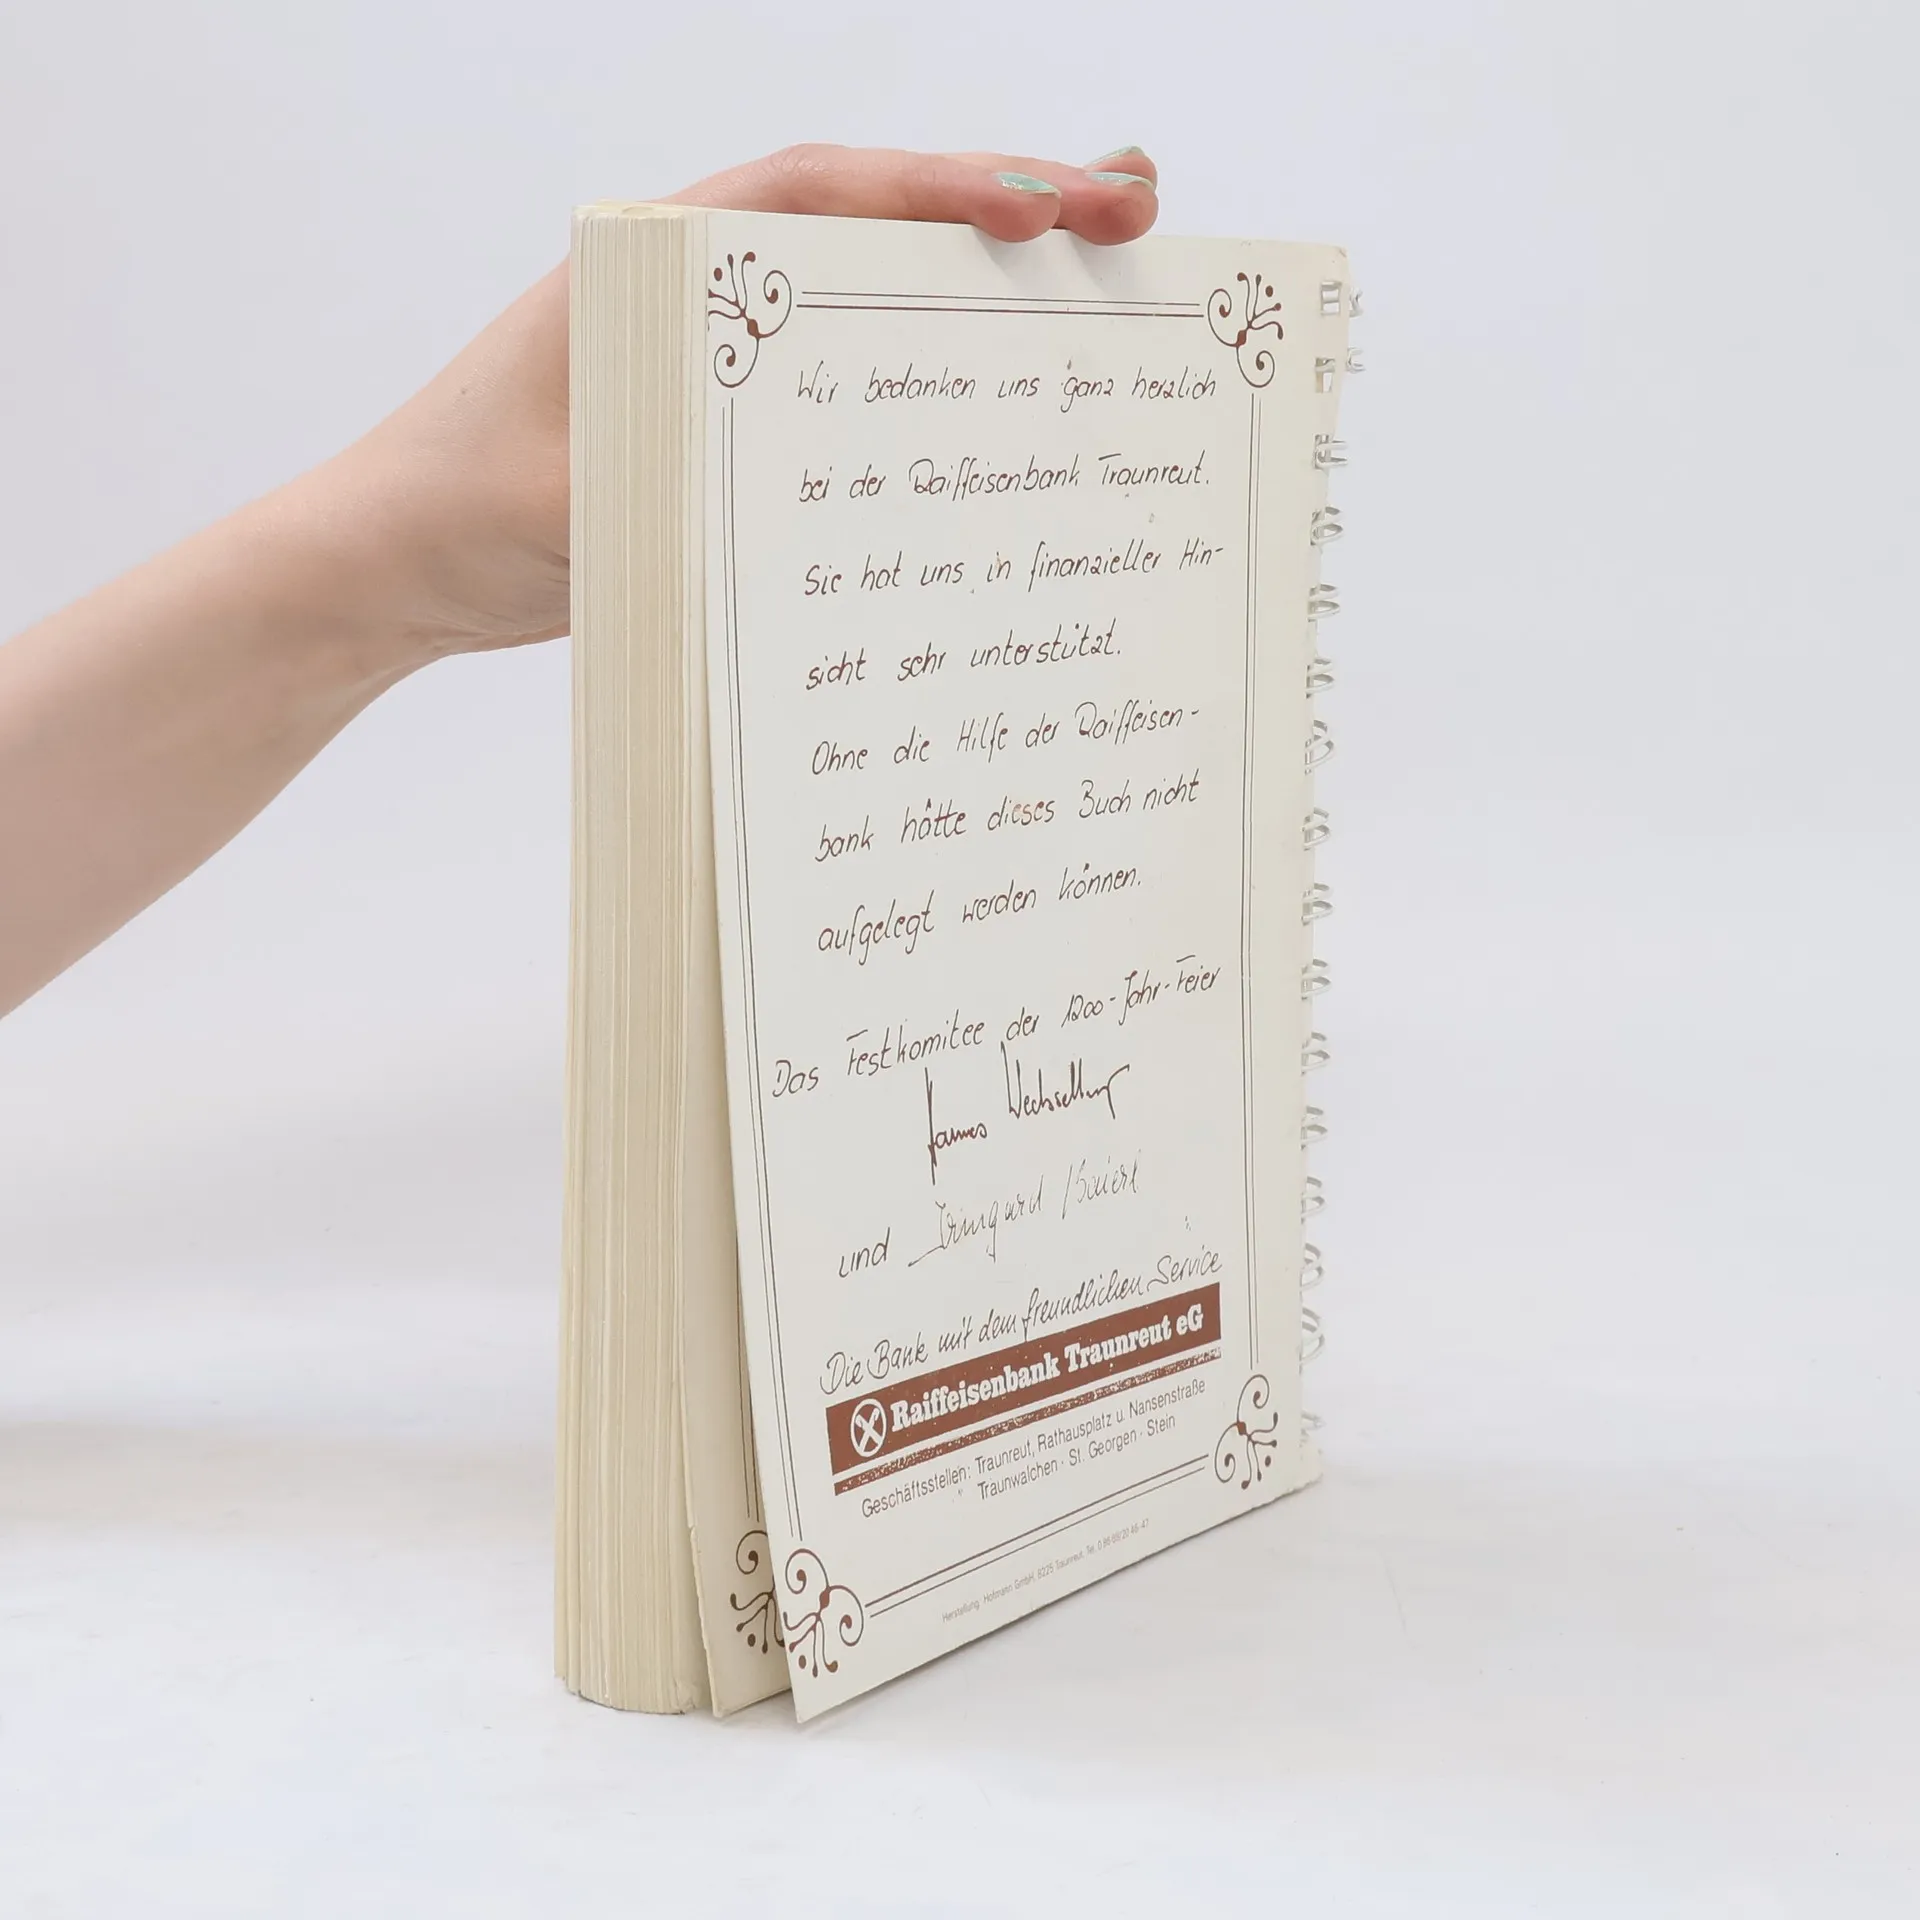 Wir bedanken uns ganz herzlich
bei der Raiffeisenbank Traunreut.
Sie hat uns in finanzieller Hin-
sicht sehr unterstützt.
Ohne die Hilfe der Raiffeisen-
bank hätte dieses Buch nicht
aufgelegt werden können.
Das Festkomitee der 1200-Jahr-Feier
und Irmgard Baierl
Die Bank mit dem freundlichen Service
Raiffeisenbank Traunreut eG
Geschäftsstellen: Traunreut, Rathausplatz u. Nansenstraße
Traunwalchen · St. Georgen · Stein
Herstellung: Hofmann GmbH, 8225 Traunreut, Tel.